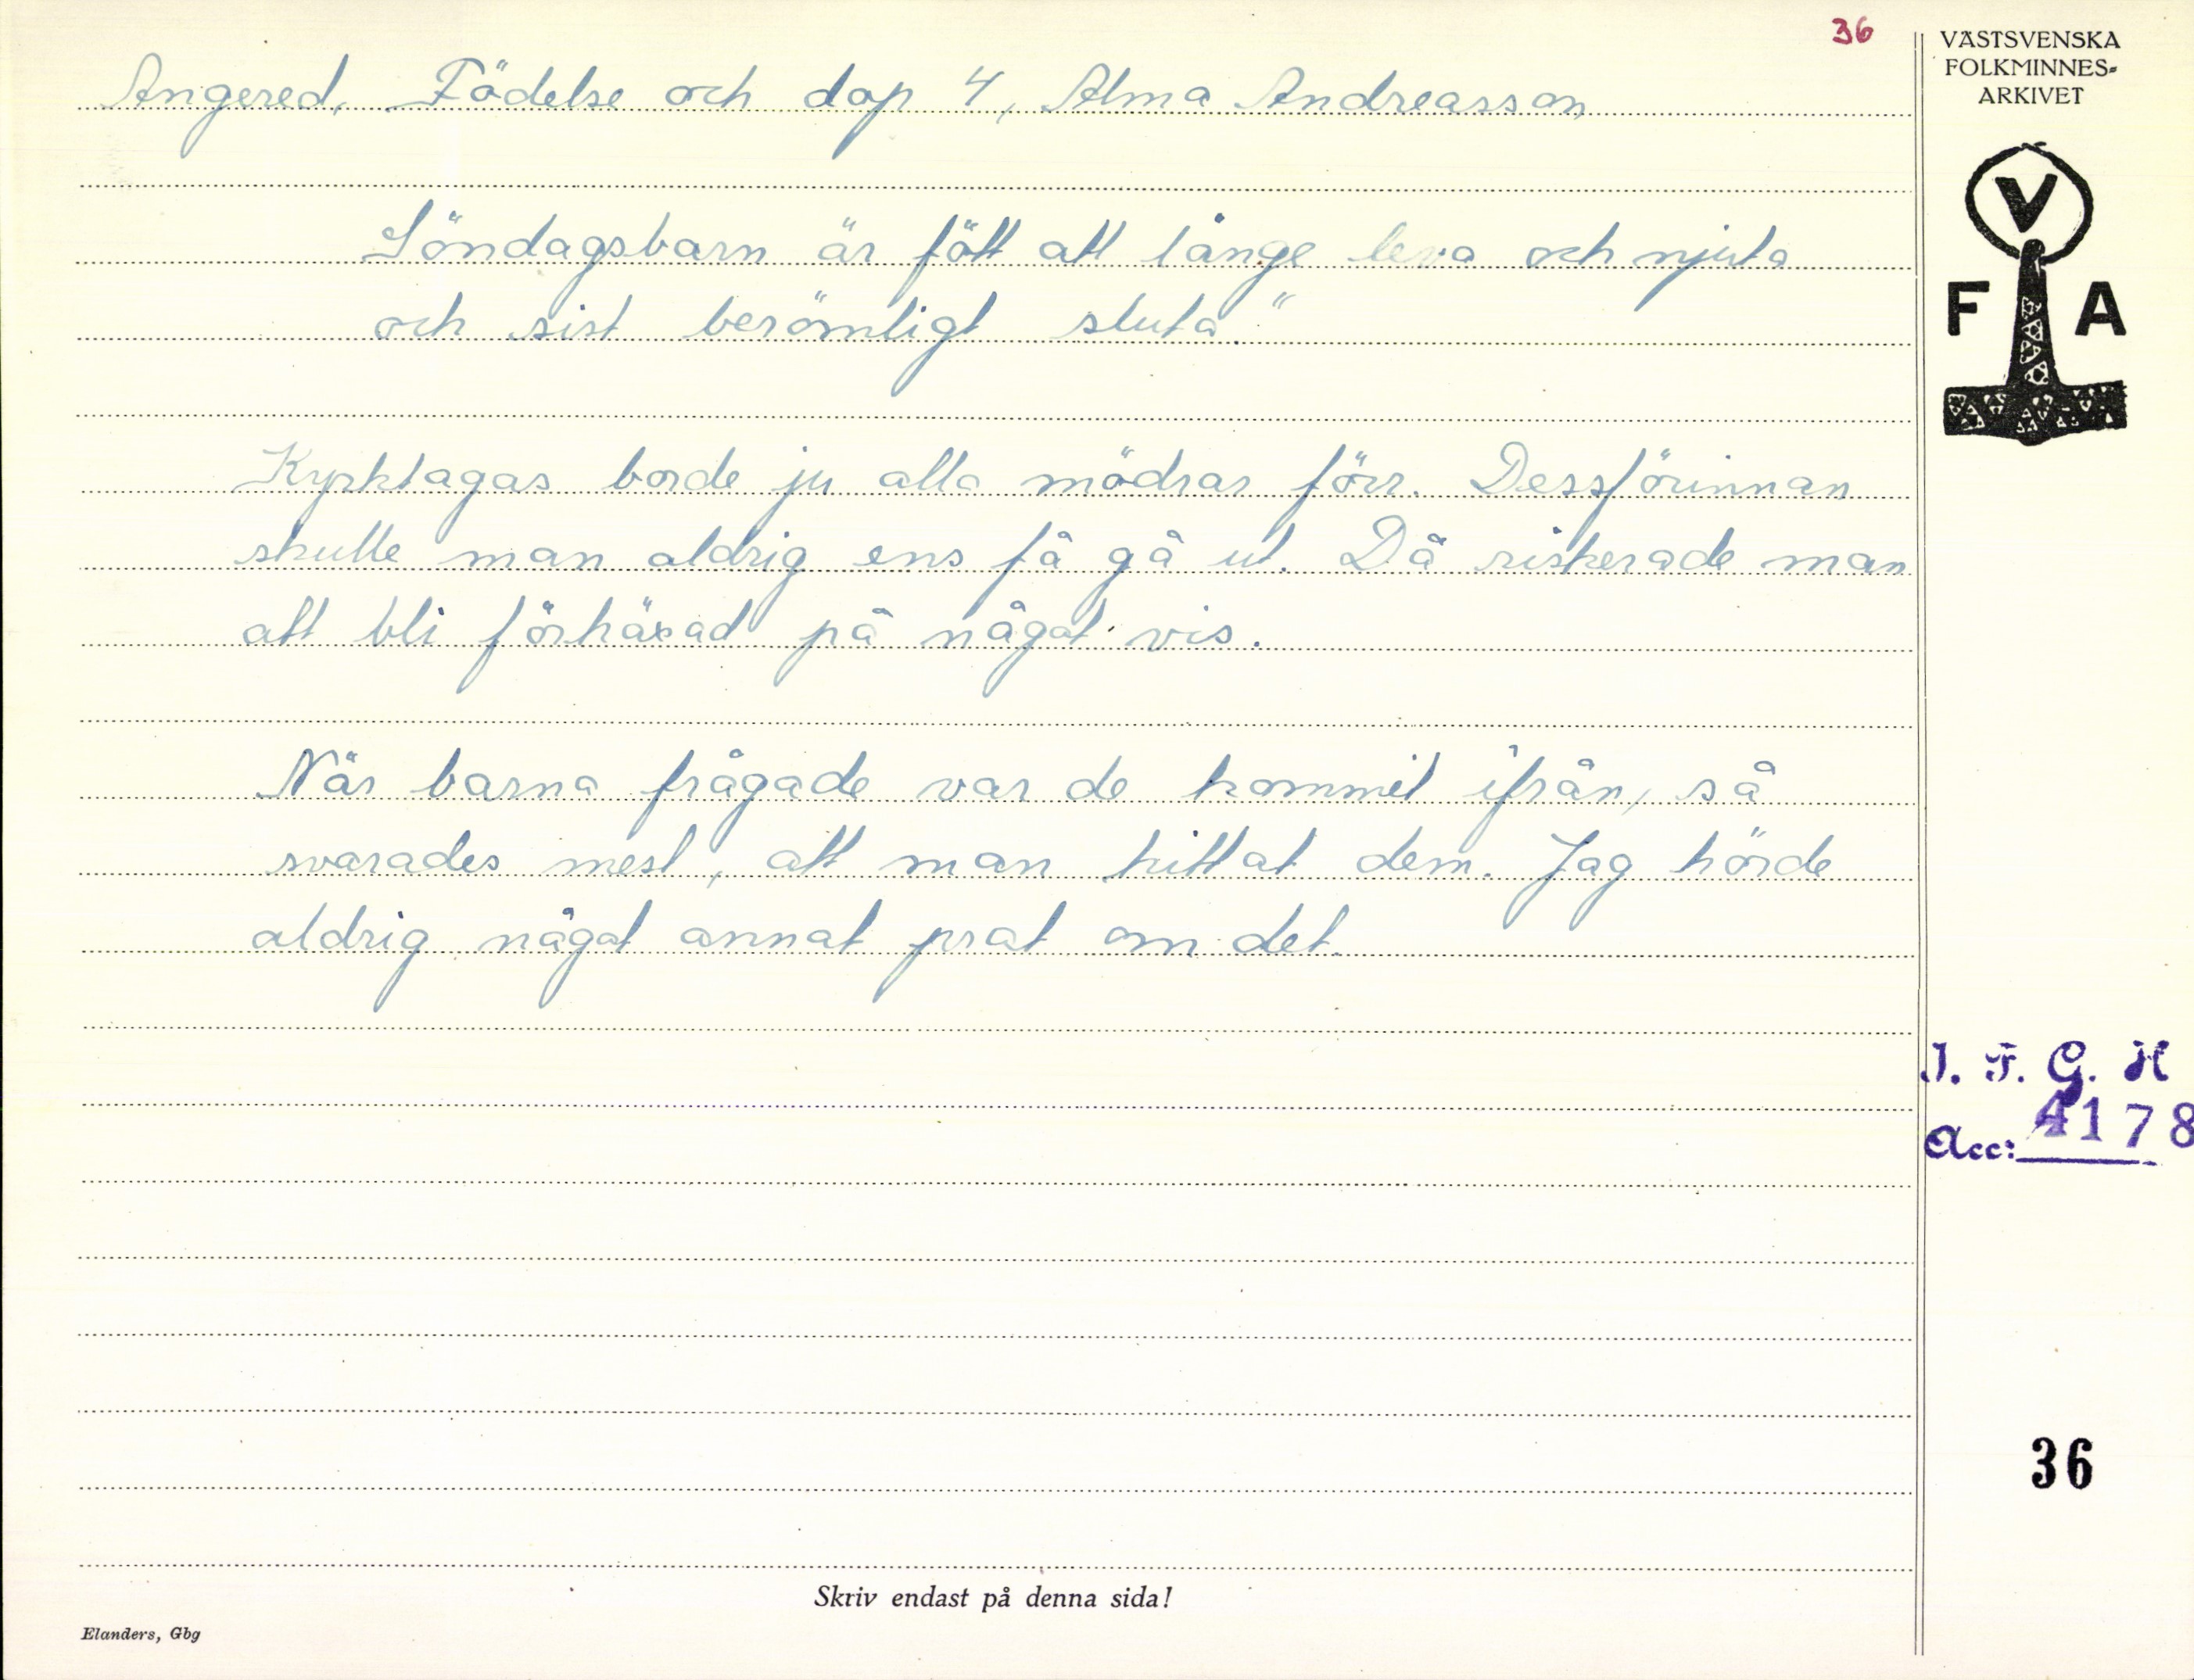 36
Angered. Födelse och dop 4, Alma Andreasson
Söndagsbarn är fött att länge leva och njuta
och sist berömligt sluta."
Kyrktagas borde ju alla mödrar förr. Dessförinnan
skulle man aldrig ens få gå ut. Då riskerade man
att bli förhäxad på något vis.
När barna frågade var de kommit ifrån, så
svarades mest, att man hittat dem. Jag hörde
aldrig något annat prat om det.
Skriv endast på denna sida!
Elanders, Gbg
VÄSTSVENSKA
FOLKMINNES-
ARKIVET
V
F A
I. F. G. H
Acc: 4178
36